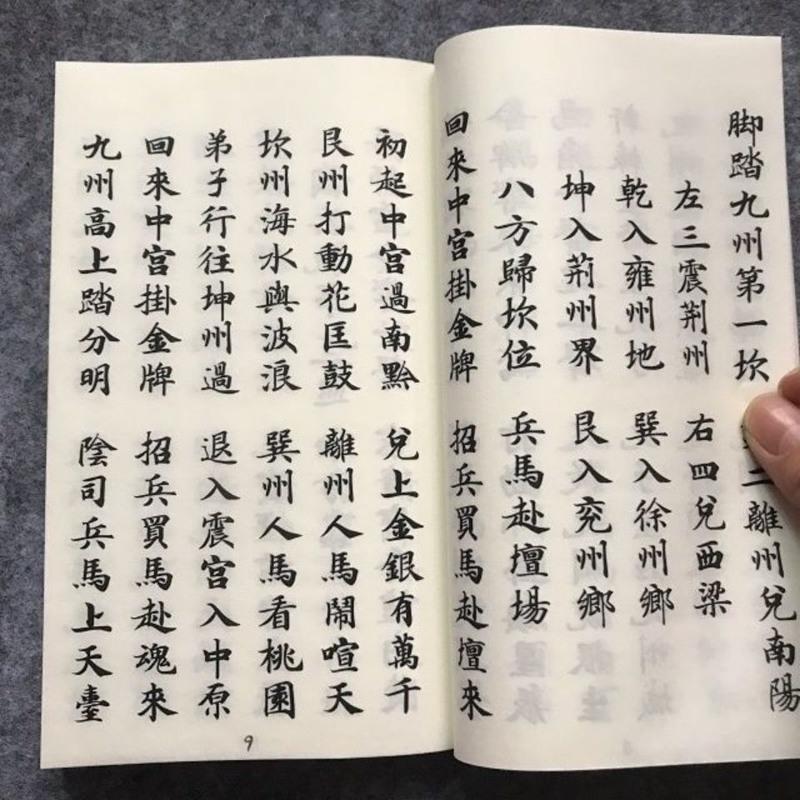 脚踏九州第一坎 二離州兌南陽
左三震荆州 右四兌西梁
乾入雍州地 巽入徐州鄉
坤入荆州界 艮入兖州鄉
八方歸坎位 兵馬赴壇場
回來中宮掛金牌 招兵買馬赴壇來
初起中宮過南黔 兌上金銀有萬千
艮州打動花匡鼓 離州人馬鬧喧天
坎州海水與波浪 巽州人馬看桃園
弟子行往坤州過 退入震宮入中原
回來中宮掛金牌 招兵買馬赴魂來
九州高上踏分明 陰司兵馬上天臺
9